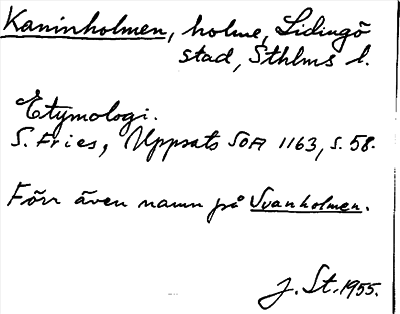 Kaninholmen, holme, Lidingö
stad, Sthlms l.
Etymologi.
S. Fries, Uppsats SOA 1163, s. 58.
Förr även namn på Svanholmen.
J. St. 1955.